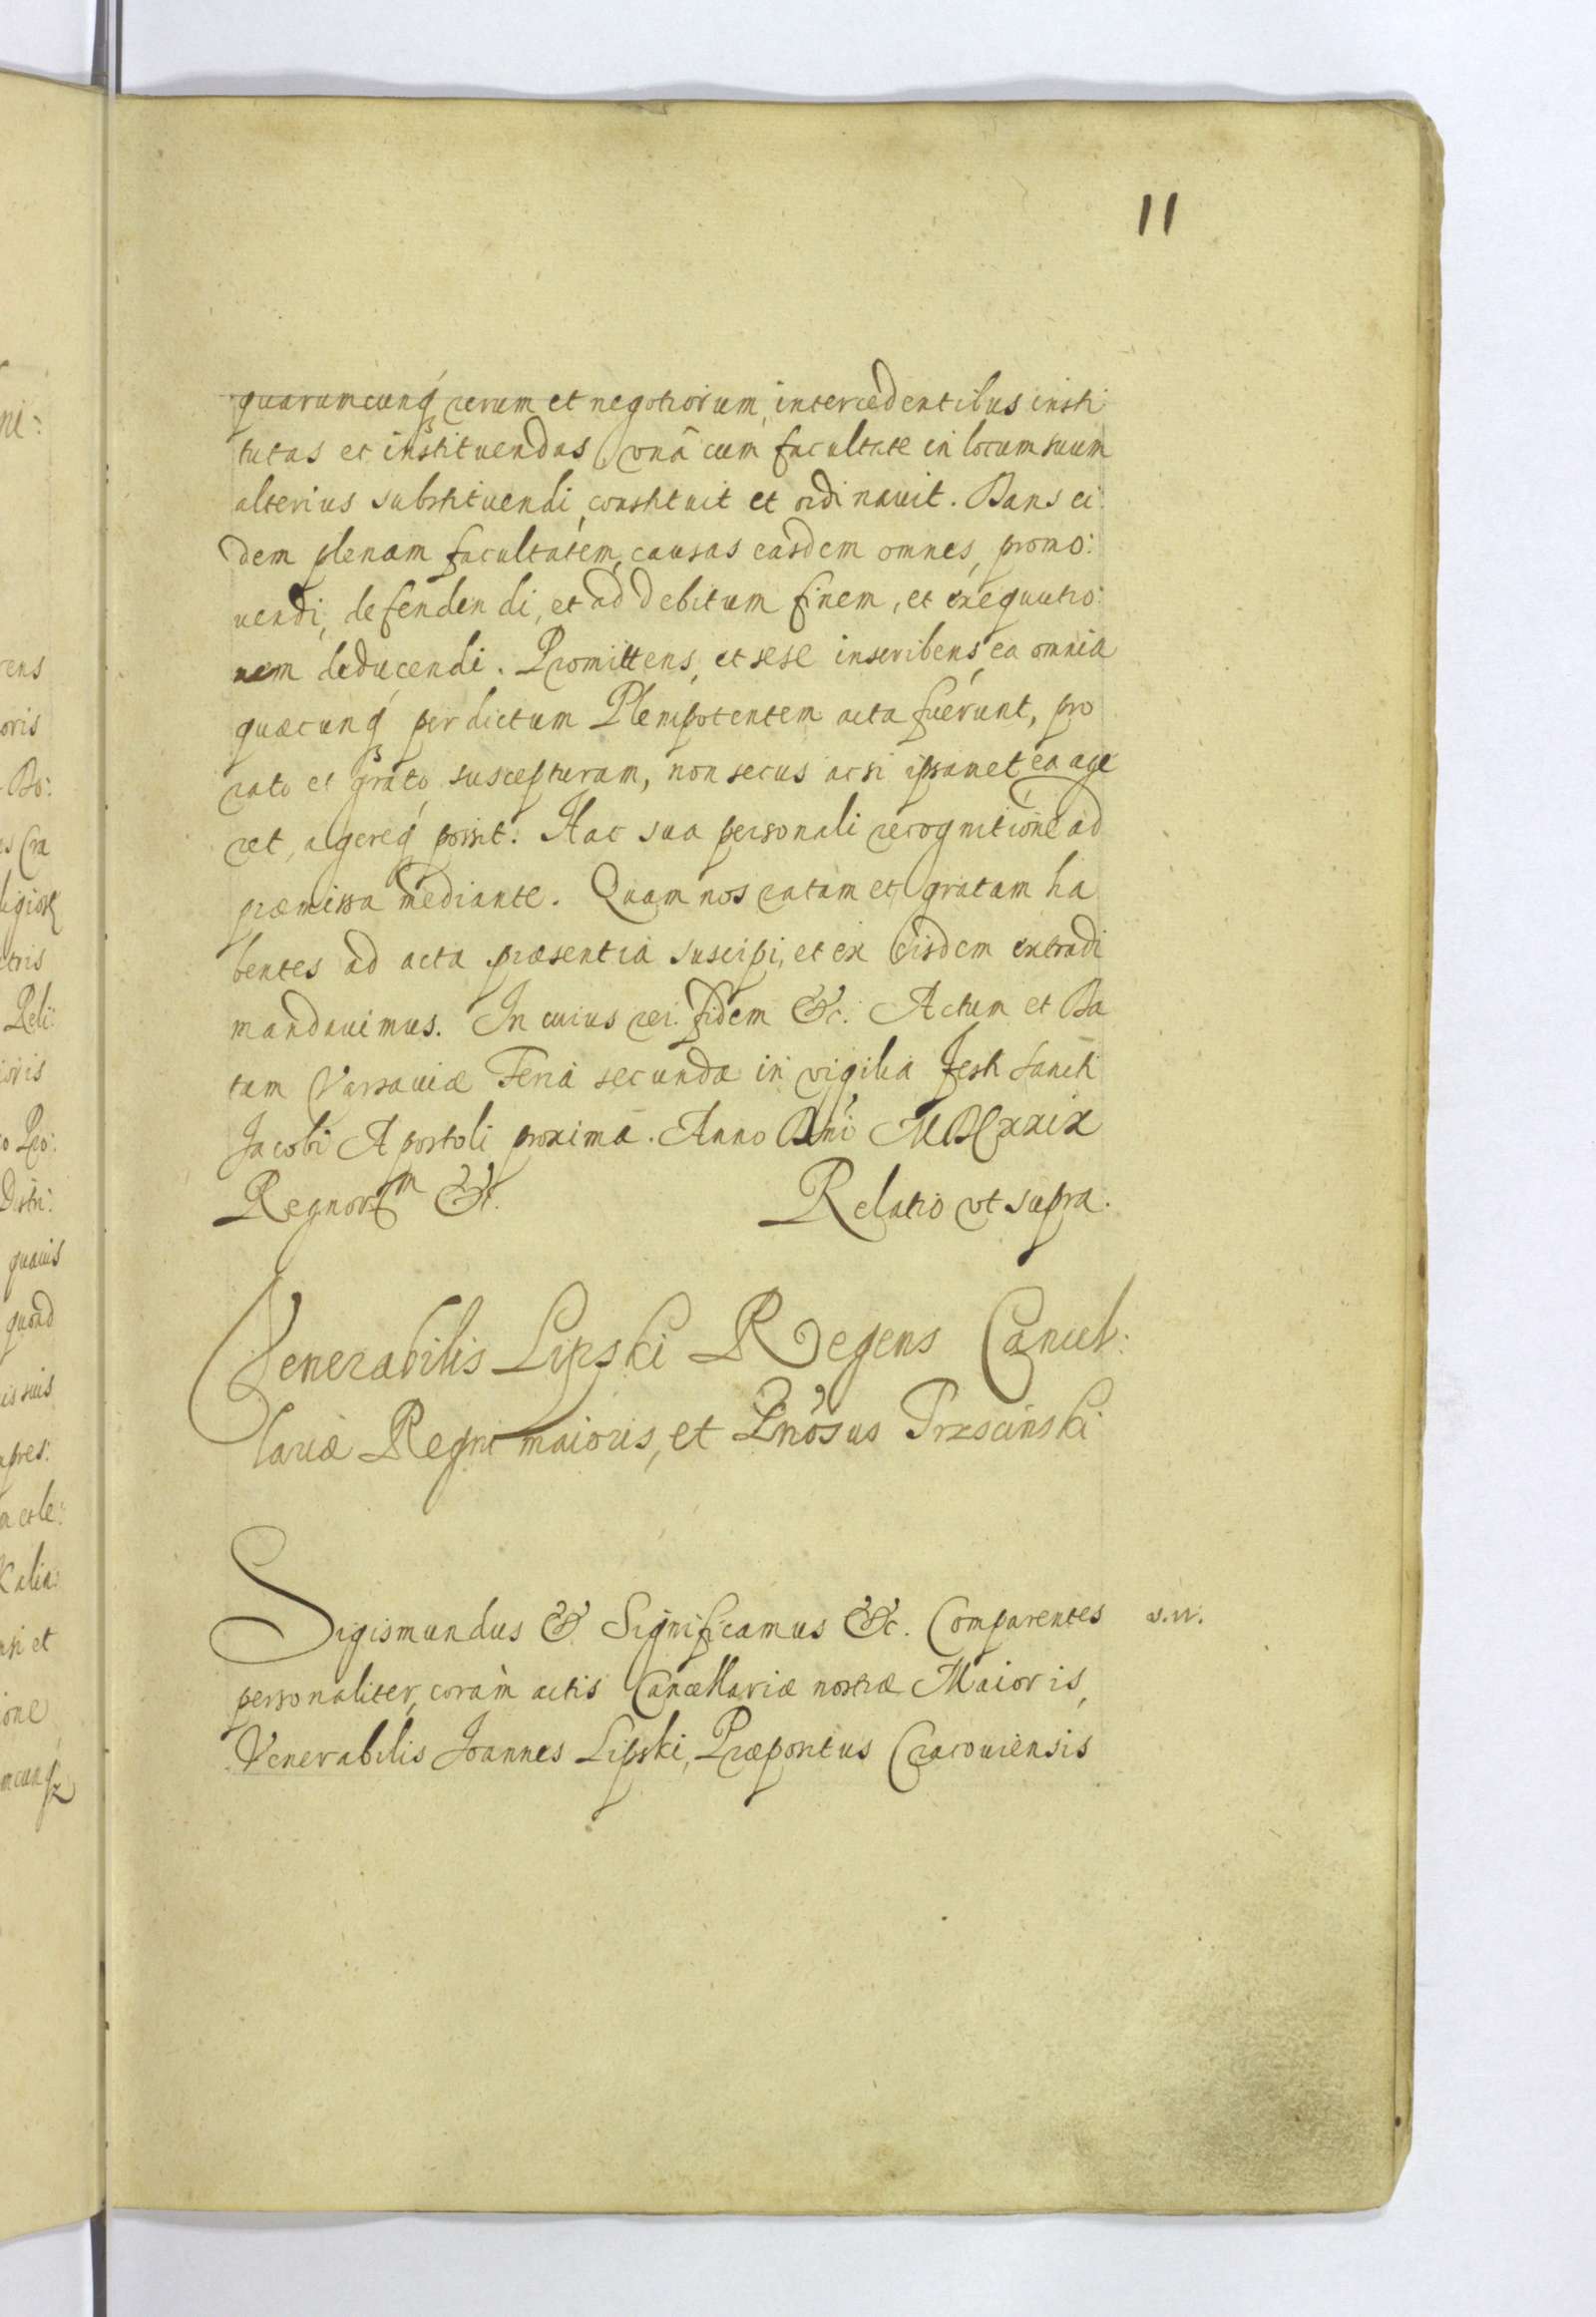 11
quarumcunq rerum et negotiorum, intercedentibus insti
tutas et instituendas, vnâ cum facultate in locum suum
alterius substituendi, constituit et ordinauit. Dans ei:
dem plenam facultatem, causas easdem omnes, promo:
uendi, defendendi, et ad debitum finem, et exequutio:
nem deducendi. Promittens, et sese inscribens ea omnia
quæcunq per dictum Plenipotentem acta fuerunt, pro
rato et grato suscepturam, non secus acsi ipsamet ea age
ret, agereq possit. Hac sua personali recognitione ad
præmissa mediante. Quam nos ratam et gratam ha
bentes ad acta præsentia suscipi, et ex eisdem extradi
mandauimus. In cuius rei fidem &c. Actum et Da
tum Varsauiæ Feria secunda in vigilia festi sancti
Jacobi Apostoli proximâ. Anno Dni MDCxxix
Regnorm &c. Relatio vt supra.
Venerabilis Lipski Regens Cancel:
lariæ Regni maioris, et Gnosus Trzscinski
Sigismundus &. Significamus &c. Comparentes
personaliter, coràm actis Cancellariæ nostræ Maioris,
Venerabilis Joannes Lipski, Præpositus Cracouiensis
ni:
rens
oris
Bo:
es Cra
ctris
Reli:
ioris
o Pro:
Distri:
quauis
quoad
is suis
apres:
a et le:
Kalia:
nsi et
ione
mcunq